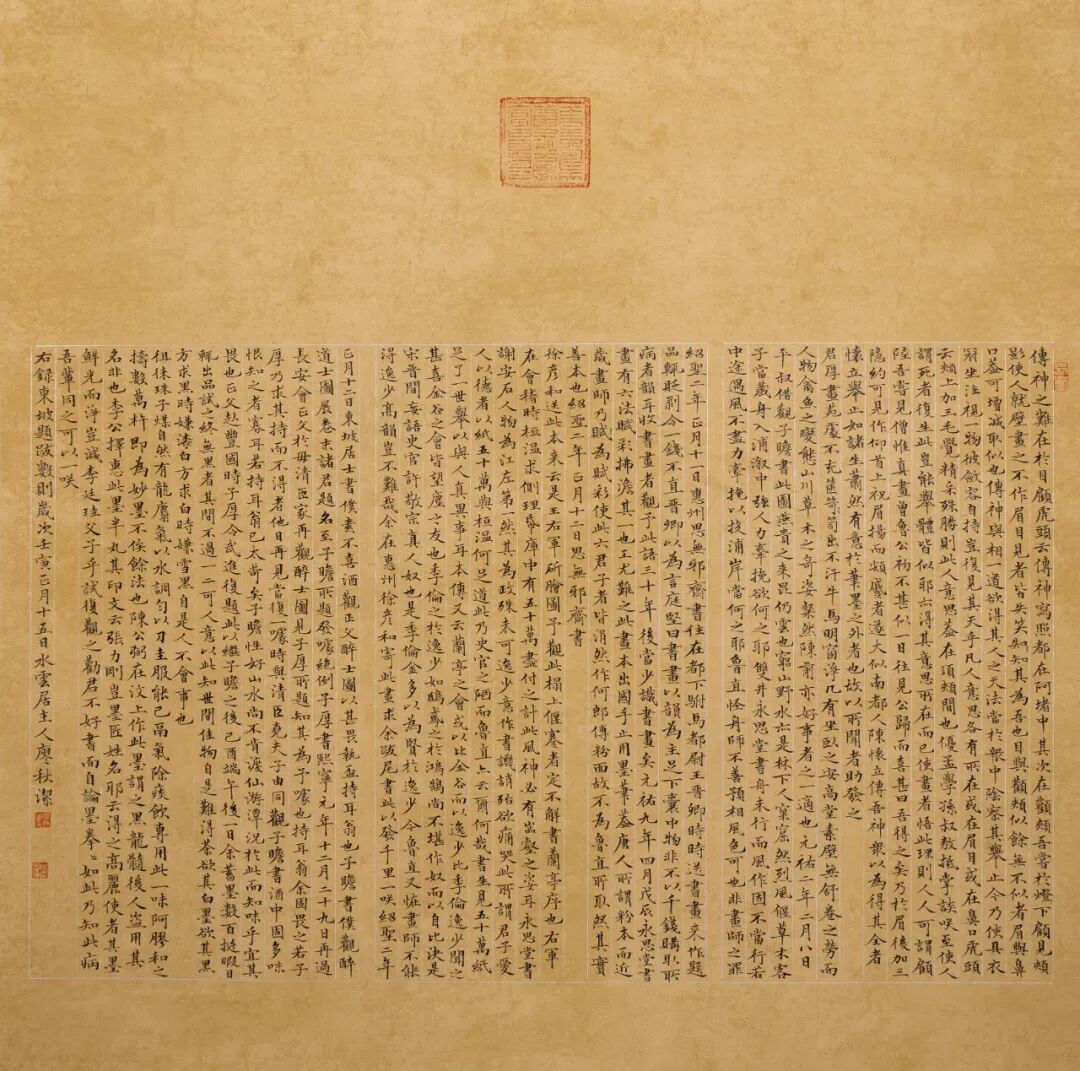 傳神之難在於目顧虎頭云傳神寫照都在阿堵中其次在顴頰吾嘗於燈下顧見頰
影使人就壁畫之不作眉目見者皆失笑知其為吾也目與顴頰似餘無不似者眉與鼻
口蓋可增減取似也傳神與相一道欲得其人之天法當於眾中陰察其舉止今乃使具衣
冠坐注視一物彼斂容自持豈復見其天乎凡人意思各有所在或在眉目或在鼻口虎頭
云頰上加三毛覺精采殊勝則此人意思蓋在須頰間也優孟學孫叔敖抵掌談咲至使人
謂死者復生此豈能舉體皆似耶亦得其意思所在而已使畫者悟此理則人人可謂顧
陸吾嘗見僧惟真畫曾魯公初不甚似一日往見公歸而喜甚曰吾得之矣乃於眉後加三
隱約可見作仰首上視眉揚而頞蹙者遂大似南都人陳懷立傳吾神眾以為得其全者
懷立舉止如諸生蕭然有意於筆墨之外者也故以所聞者助發之
君厚畫苑處不充篋笥出不汗牛馬明窗淨几有坐臥之安高堂素壁無舒卷之勞而
人物禽魚之變態山川草木之奇姿粲然陳前亦好事者之一適也元祐二年二月八日
平叔借觀子瞻書此圖燕貴之來昆仍雲也窮山野水亦是林下人窠窟然烈風偃草木客
子當藏舟入浦漵中強人力牽挽欲何之耶雙井永思堂書舟未行而風作固不當行若
中途遇風不盡力牽挽以投浦岸當何之耶魯直怪舟師不善預相風色可也非畫師之罪
紹聖二年正月十一日惠州思無邪齋書往在都下駙馬都尉王晉卿時時送書畫來作題
品輒貶剝令一錢不直晉卿以為言庭堅曰書畫以韻為主足下囊中物非不以千錢購取所
病者韻耳收書畫者觀予此語三十年後當少識書畫矣元祐九年四月戊辰永思堂書
畫有六法賦彩拂澹其一也工尤難之此畫本出國手止用墨筆蓋唐人所謂粉本而近
歲畫師乃賦為賦彩使此六君子者皆涓然作何郎傅粉面故不為魯直所取然其實
善本也紹聖二年正月十二日思無邪齋書
徐彥和送此本來云是王右軍斫膾圖予觀此榻上偃蹇者定不解書蘭亭序也右軍
在會稽時桓溫求側理帋庫中有五十萬盡付之計此風神必有嵓壑之姿耳永思堂書
謝安石人物為江左第一然其為政殊未可逸少意作書譏誚殆欲痛哭此所謂君子愛
人以德者以紙五十萬與桓溫何足道此乃史官之陋而魯直亦云爾何哉書生見五十萬紙
足了一世舉以與人真異事耳本傳又云蘭亭之會或以比金谷而以逸少比季倫逸少聞之
甚喜金谷之會皆望塵之友也季倫之於逸少如鴟鳶之於鴻鵠尚不堪作奴而以自比決是
宋晉間妄語史官許敬宗真人奴也見季倫金多以為賢於逸少今魯直又怪畫師不能
得逸少高韻豈不難哉余在惠州徐彥和寄此畫求余跋尾書此以發千里一咲紹聖二年
正月十二日東坡居士書僕素不喜酒觀正父醉士圖以甚畏執盃持耳翁也子瞻書僕觀醉
道士圖展卷末諸君題名至子瞻所題發噱絕倒子厚書熙寧元年十二月二十九日再過
長安會正父於毋清臣家再觀醉士圖見子厚所題知其為予噱也持耳翁余固畏之若子
厚乃求其持而不得者他日再見當復一噱時與清臣堯夫子由同觀子瞻書酒中固多味
恨知之者寡耳若持耳翁已太苛矣子瞻性好山水尚不肯渡仙游潭況於此而知味乎宜其
畏也正父赴豐國時子厚令武進復題此以繼子瞻之後己酉端午後一日余蓄墨數百挺暇日
輒出品試之終無黑者其間不過一二可人意以此知世間佳物自是難得茶欲其白墨欲其黑
方求黑時嫌漆白方求白時嫌雪黑自是人不會事也
徂徠珠子煤自然有龍麝氣以水調勻以刀圭服能已鬲氣除痰飲專用此一味阿膠和之
擣數萬杵即為妙墨不俟餘法也陳公弼在汶上作此墨謂之黑龍髓後人盜用其
名非也李公擇惠此墨半丸其印文云張力剛豈墨匠姓名耶云得之高麗使者其墨
鮮光而淨豈減李廷珪父子乎試復觀之勸君不好書而自論墨拳〻如此乃知此病
吾輩同之可以一咲
右錄東坡題跋數則歲次壬寅正月十五日水雲居主人廖秋潔